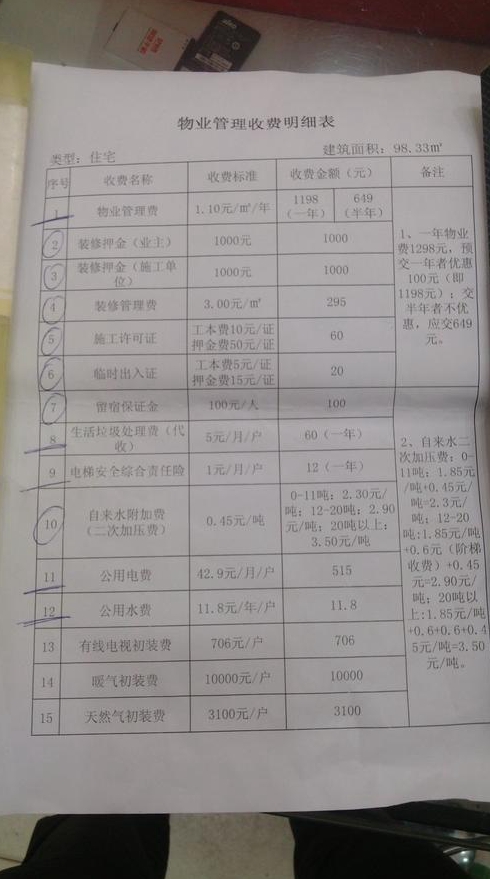 物业管理收费明细表
类型：住宅
建筑面积：98.33㎡
序号 收费名称 收费标准 收费金额（元） 备注
1 物业管理费 1.10元/㎡/年 1198（一年） 649（半年）
2 装修押金（业主） 1000元 1000
3 装修押金（施工单位） 1000元 1000
4 装修管理费 3.00元/㎡ 295
5 施工许可证 工本费10元/证 押金费50元/证 60
6 临时出入证 工本费5元/证 押金费15元/证 20
7 留宿保证金 100元/人 100
8 生活垃圾处理费（代收） 5元/月/户 60（一年）
9 电梯安全综合责任险 1元/月/户 12（一年）
10 自来水附加费（二次加压费） 0.45元/吨 0-11吨：2.30元/吨；12-20吨：2.90元/吨；20吨以上：3.50元/吨
11 公用电费 42.9元/月/户 515
12 公用水费 11.8元/年/户 11.8
13 有线电视初装费 706元/户 706
14 暖气初装费 10000元/户 10000
15 天然气初装费 3100元/户 3100
1、一年物业
费1298元，预
交一年者优惠
100元（即
1198元）；交
半年者不优
惠，应交649
元。
2、自来水二
次加压费：0-
11吨：1.85元
/吨+0.45元/
吨=2.3元/
吨；12-20
吨:1.85元/吨
+0.6元（阶梯
收费）+0.45
元=2.90元/
吨；20吨以
上:1.85元/吨
+0.6+0.6+0.4
5元/吨=3.50
元/吨。